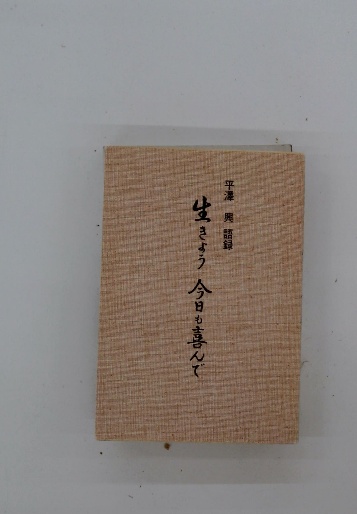 平澤 興 語録
生きよう 今日も喜んで